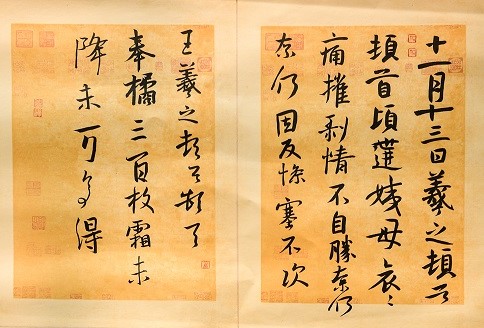 十一月十三日羲之頓首
頓首頃遘姨母哀〻
痛摧剥情不自勝奈何
奈何因反慘塞不次
王羲之頓首頓首
奉橘三百枚霜未
降未可多得